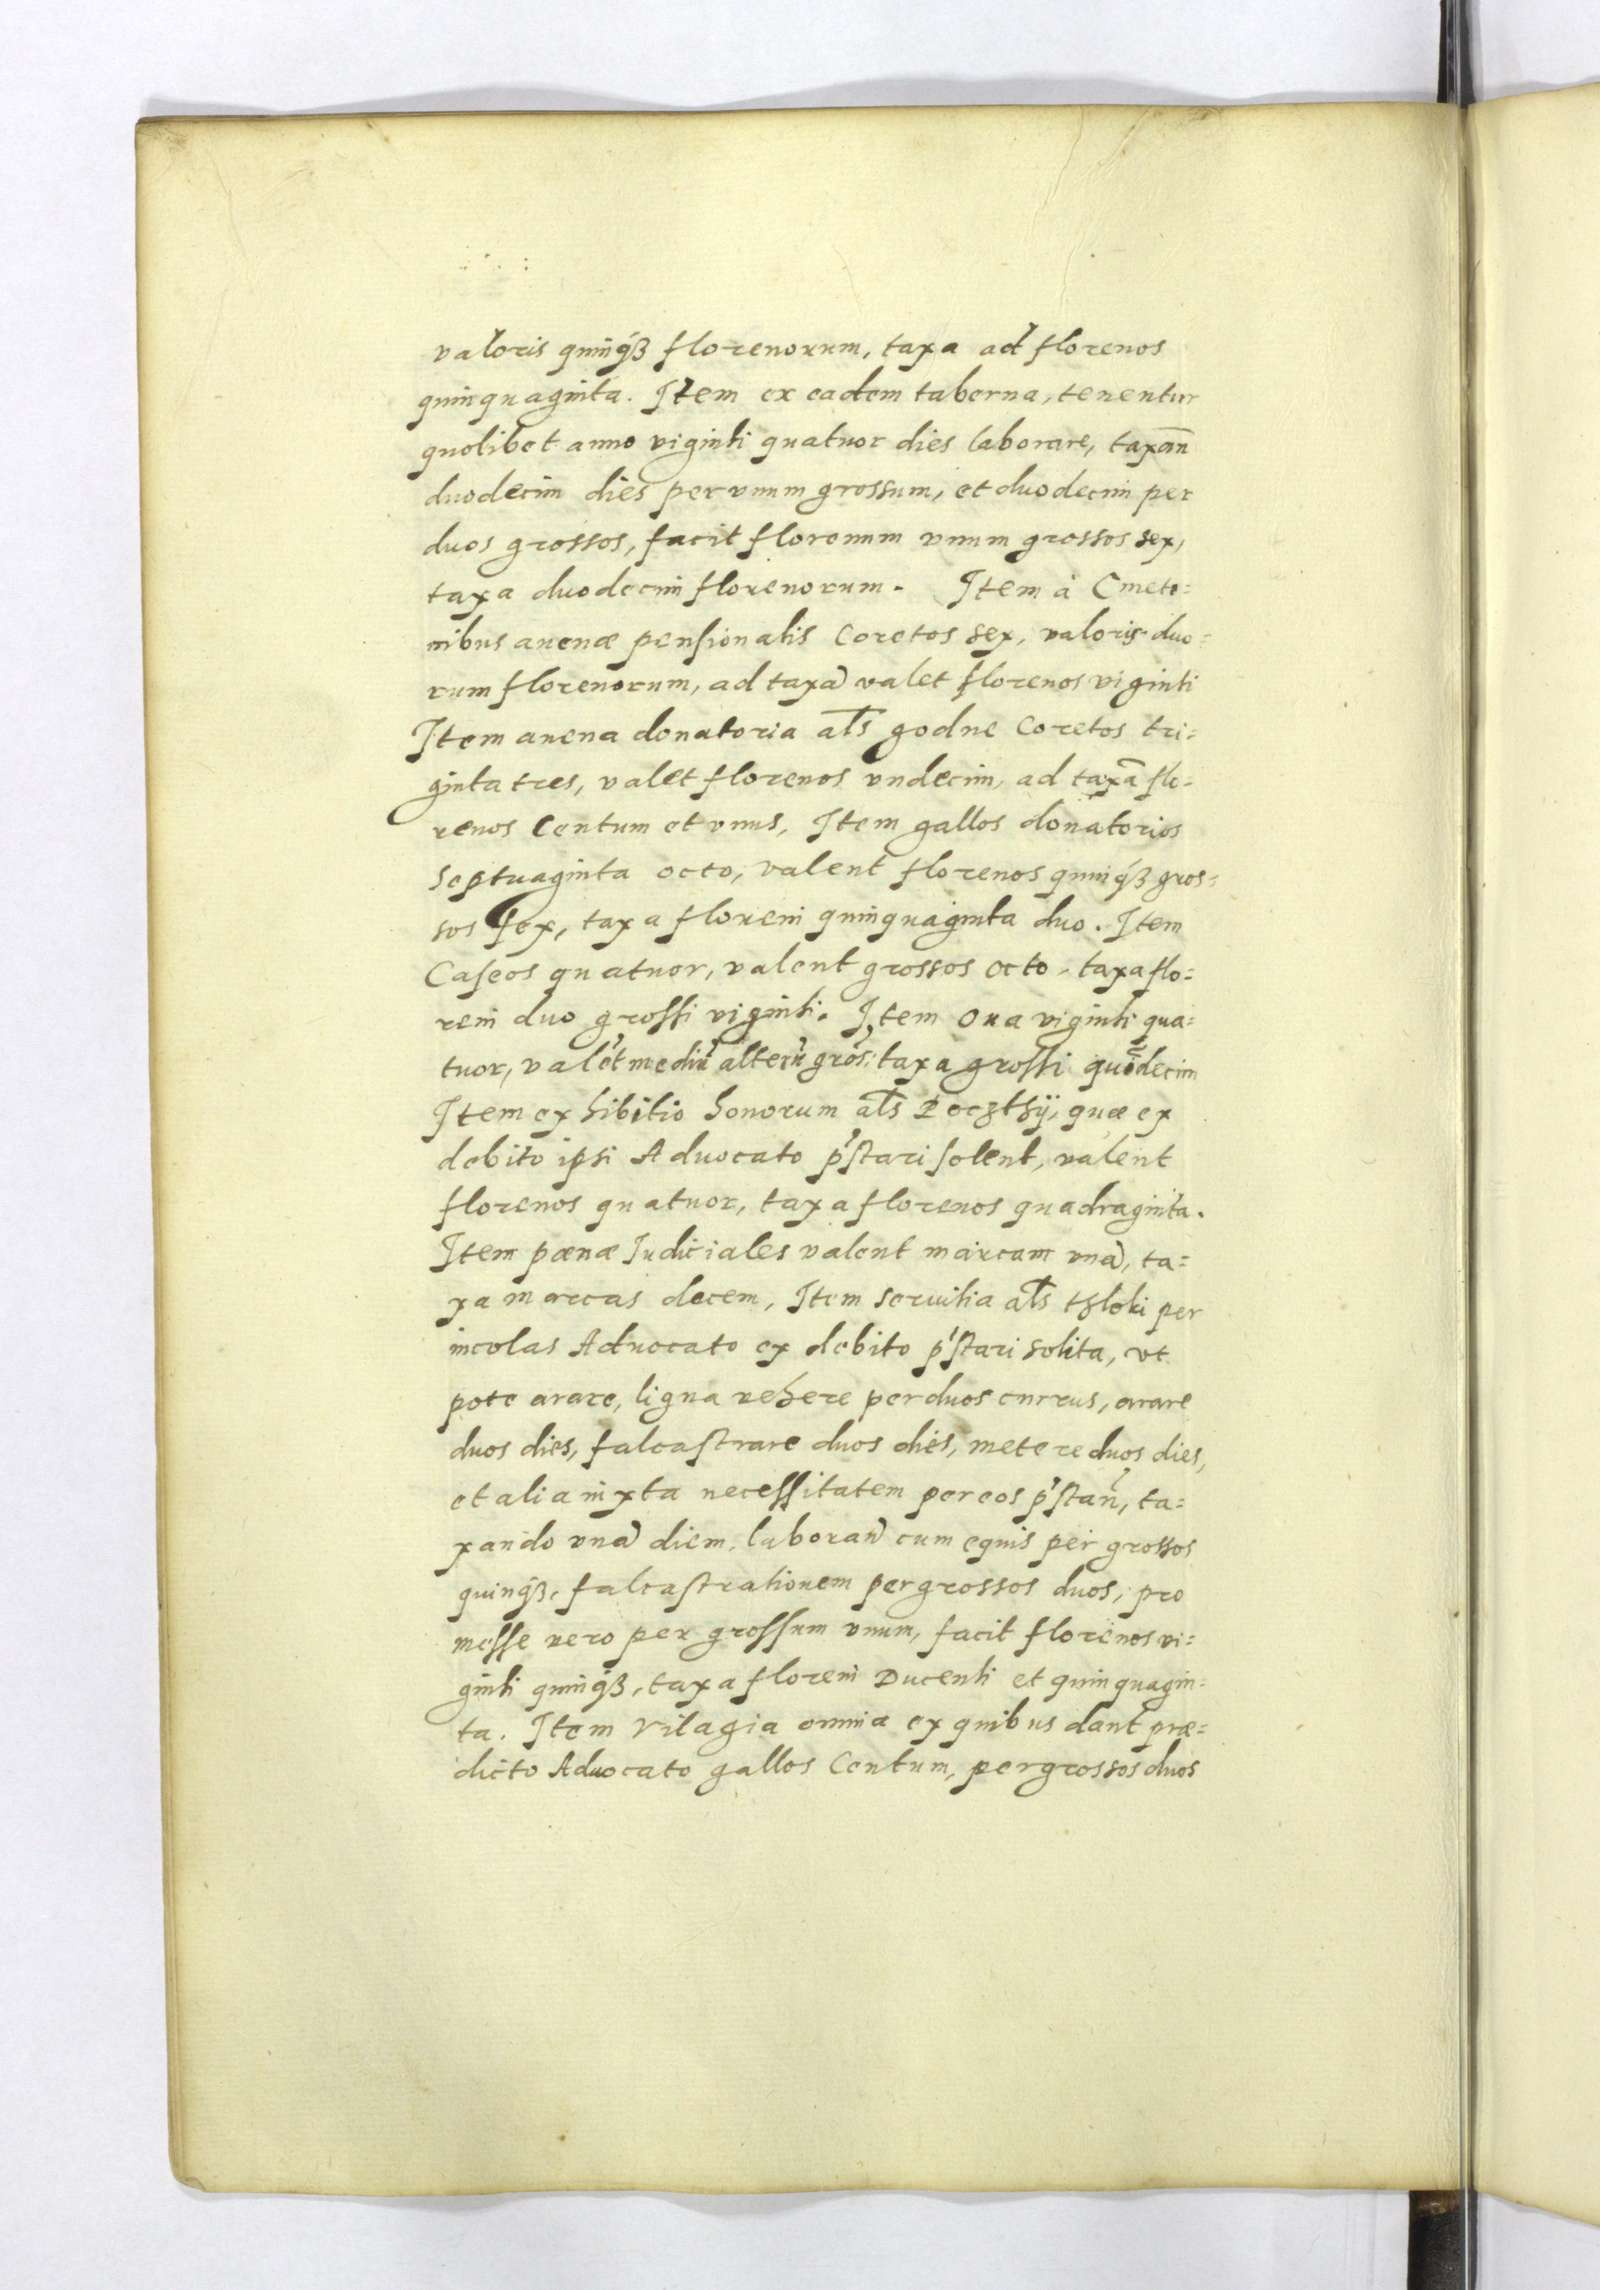 valoris quinq́ꝫ florenorum, taxa ad florenos
quinquaginta. Item ex eadem taberna, tenentur
quolibet anno viginti quatuor dies laborare, taxan̄
duodecim dies per vnum grossum, et duodecim per
duos grossos, facit florenum vnum grossos sex,
taxa duodecim florenorum. Item à Cmeto=
nibus auenæ pensionalis Coretos sex, valoris duo=
rum florenorum, ad taxā valet florenos viginti
Item auena donatoria als̄ godne Coretos tri=
ginta tres, valet florenos vndecim, ad taxā flo=
renos Centum et vnus, Item gallos donatorios
septuaginta octo, valent florenos quinq́ꝫ gros=
sos sex, taxa floreni quinquaginta duo. Item
Caseos quatuor, valent grossos octo, taxa flo=
reni duo grossi viginti. Item Oua viginti qua=
tuor, valēt mediū alterū gros: taxa grossi quīdecim
Item exhibitio honorum als̄ Poczthÿ, quæ ex
debito ipsi Aduocato p̄stari solent, valent
florenos quatuor, taxa florenos quadraginta.
Item pœnæ Iudiciales valent marcam vnā, ta=
xa marcas decem, Item seruitia als̄ thloki per
incolas Aduocato ex debito p̄stari solita, vt
pote arare, ligna vehere per duos currus, arare
duos dies, falcastrare duos dies, metere duos dies,
et alia iuxta necessitatem per eos p̄stan̄, ta=
xando vnā diem, laboran̄ cum equis per grossos
quinq́ꝫ, falcastrationem per grossos duos, pro
messe vero per grossum vnum, facit florenos vi=
ginti quinq́ꝫ, taxa floreni Ducenti et quinquagin=
ta. Item Vilagia omnia ex quibus dant præ=
dicto Aduocato gallos Centum, per grossos duos